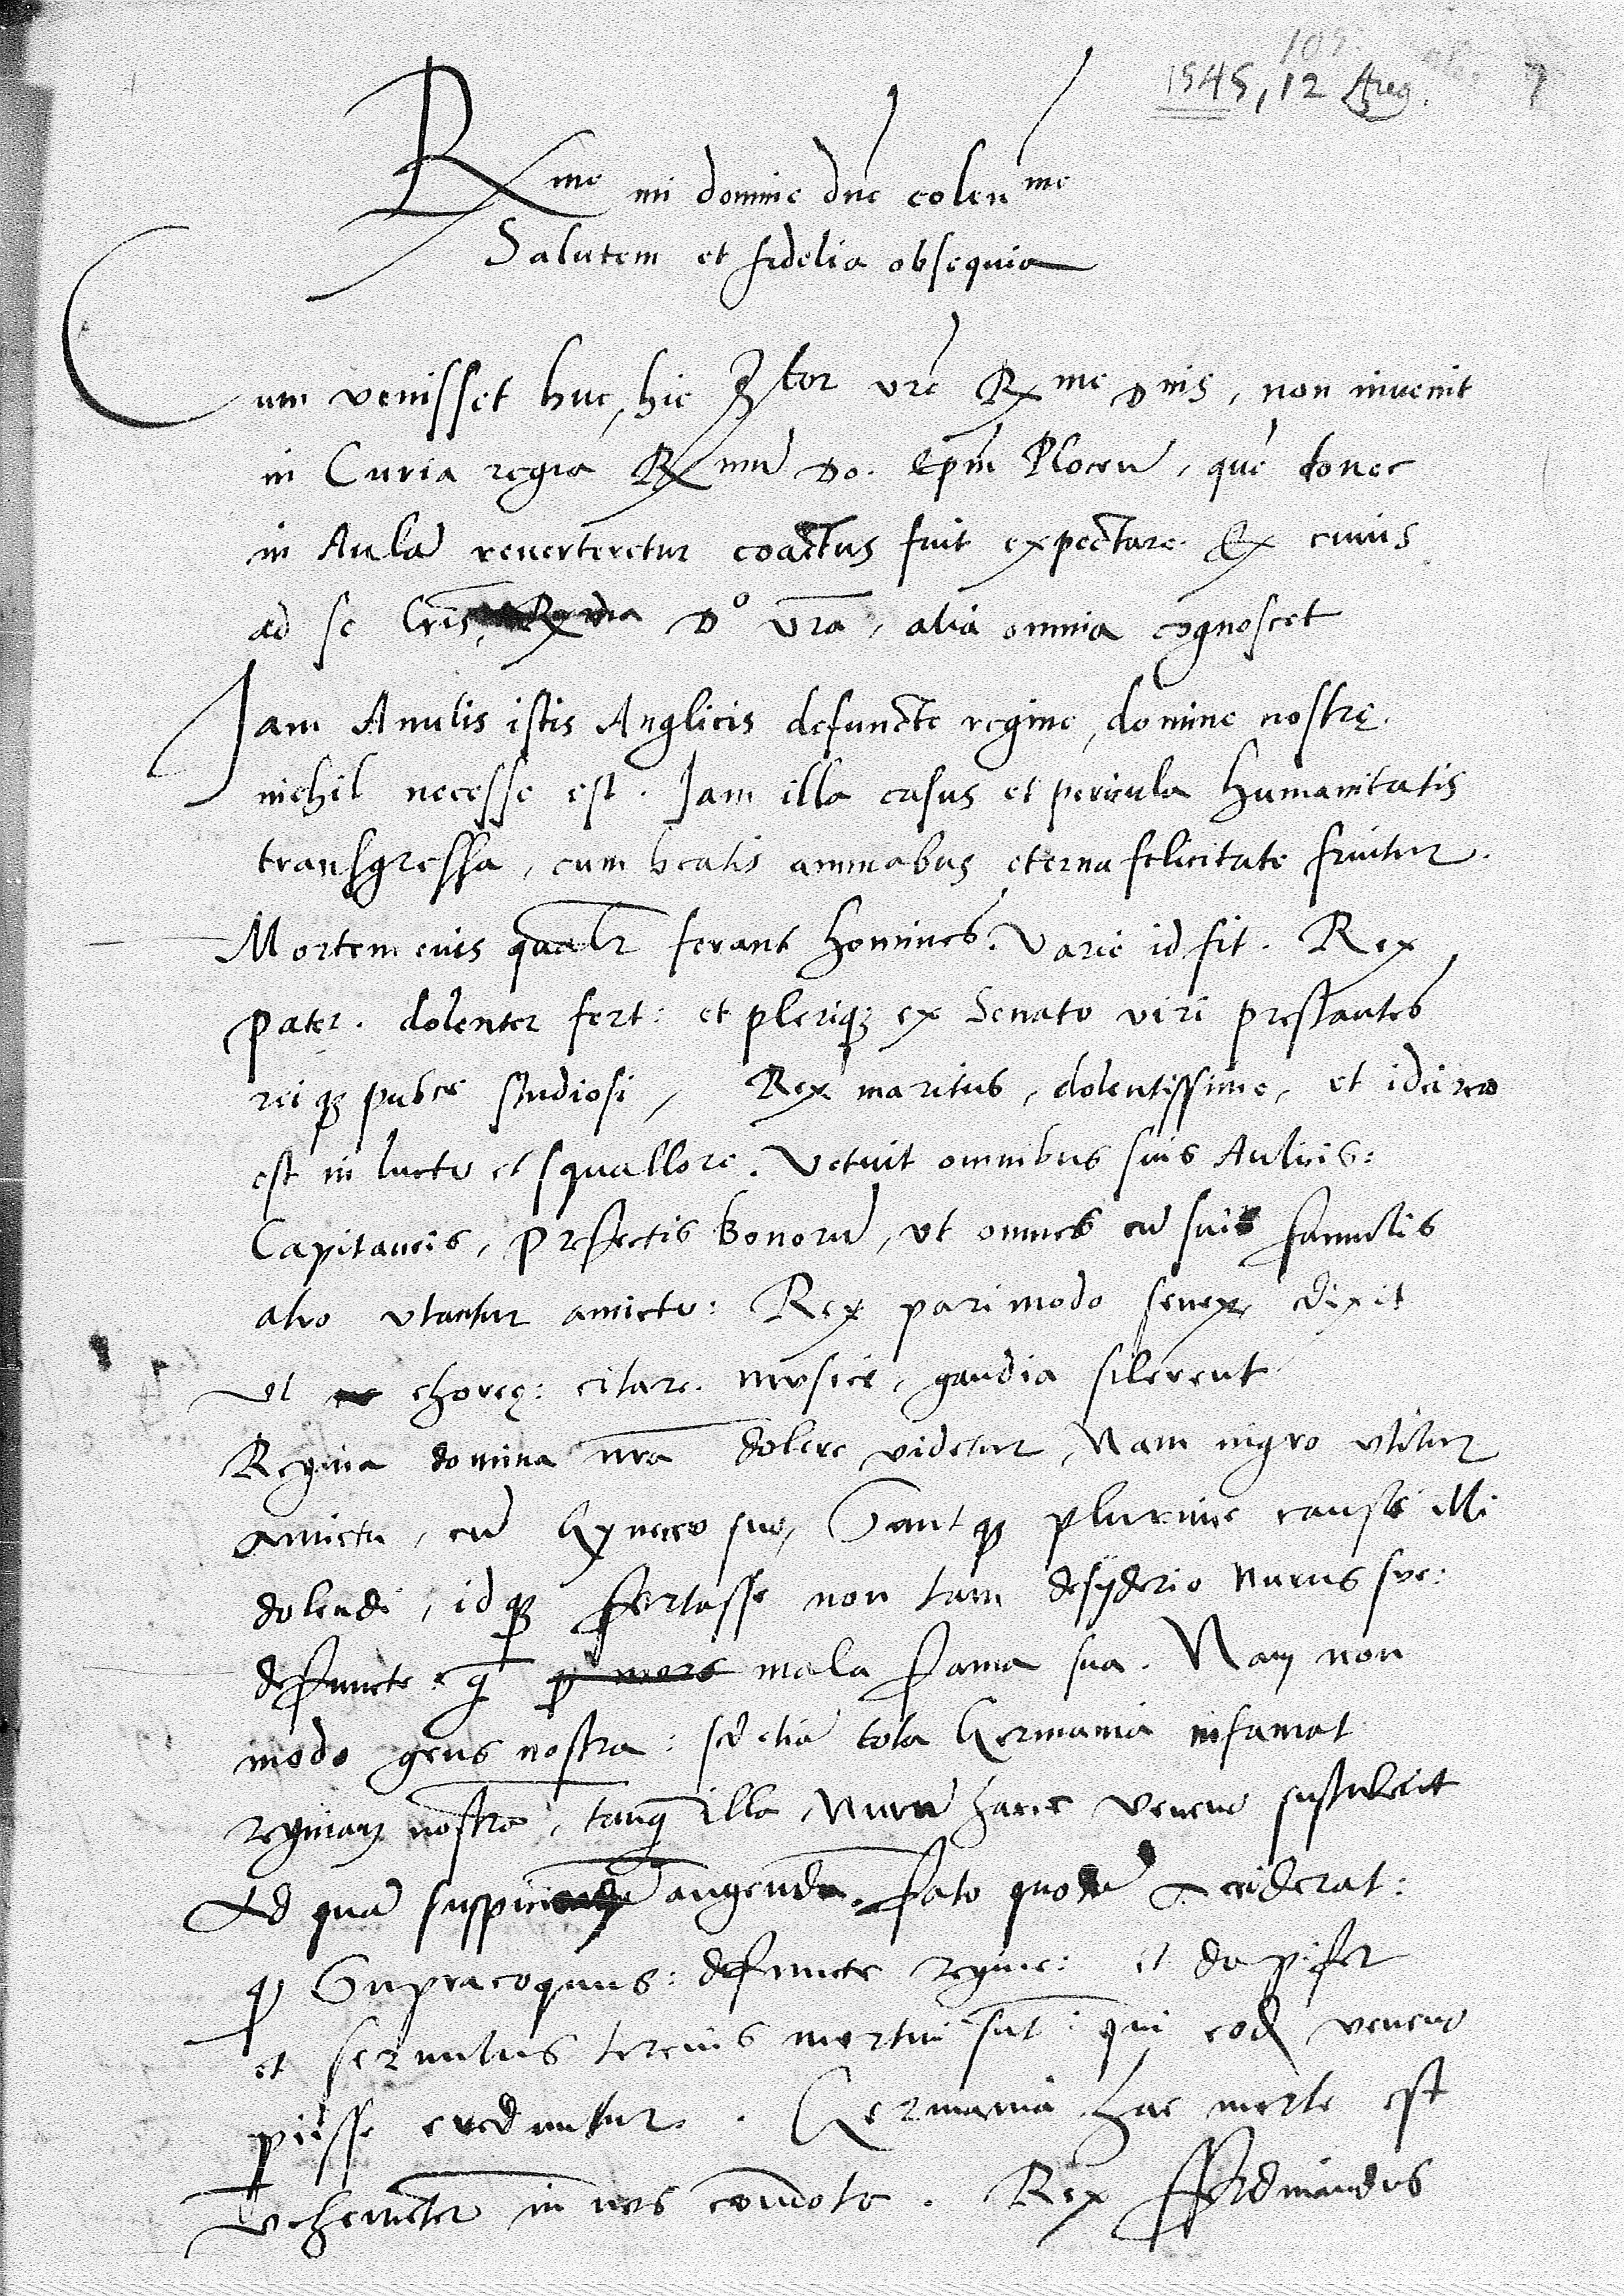 1545, 12 Aug. 7
R me mi domine dne colen me
Salutem et fidelia obsequia
Cum venisset huc, hic vre R me D nis, non invenit
in Curia regia R mu Do. Epm Plocen, que donec
in Aula reverteretur coactus fuit expectare. Ex cuius
ad se lris, R dia Dº vra, alia omnia cognoscet
Jam Anulis istis Anglicis defuncte regine, domine nostrę.
nichil necesse est. Jam illa casus et pericula humanitatis
transgressa, cum beatis animabus eterna felicitate fruitur.
Mortem eius qualr ferant homines. Varie id fit. Rex
pater. dolenter fert: et pleriqꝫ ex Senato viri prestantes
rei qꝫ publce studiosi, Rex maritus, dolentissime, et idcirco
est in luctu et squallore. Vetuit omnibus suis Aulicis:
Capitaneis, prefectis bonoru, ut omnes cu suis famulis
atro utantur amictu: Rex pari modo senex dixit
ut choreę: citare. musice, gaudia silerent
Regina domina nra dolere videtur, Nam nigro utitur
amictu, cu Gyneceo suo, Sunt qꝫ plurime cause illi
dolendi, id qꝫ fortasse non tam desyderio nurus sue:
defuncte q mala fama sua. Nam non
modo gens nostra: sed etia tota Germania infamat
reginam nostra, tanq illa Nuru hanc veneno sustulerit
Ad qua augenda. fato quoda acciderat:
qꝫ Supracoquus: defuncte regine: et dapifer
et servulus tercius mortui sut: qui eode veneno
piisse creduntur. Germania hac morte est
vehemeter in nos comota. Rex Ferdinandus